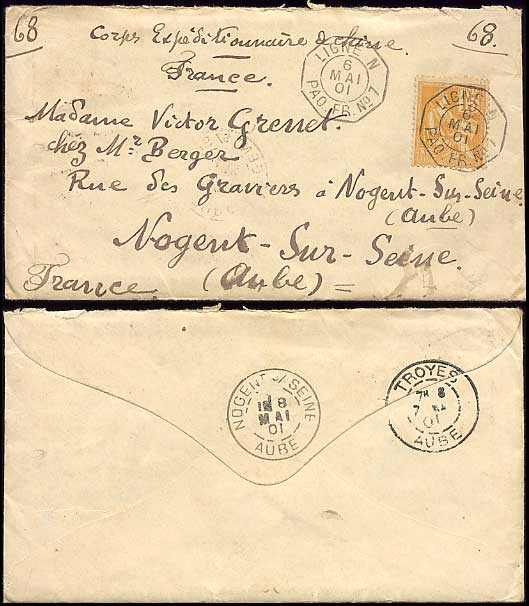 68
Corps Expéditionnaire de chine.
68.
France.
LIGNE N
6
MAI
01
PAQ. FR. No 7
LIGNE N
6
MAI
01
PAQ. FR. No 7
Madame Victor Grenet.
chez Mr Berger
Rue des Graviers à Nogent-Sur-Seine
(Aube)
Nogent-Sur-Seine.
France (Aube) =
NOGENT S/ SEINE
8
MAI
01
AUBE
TROYES
7
01
AUBE